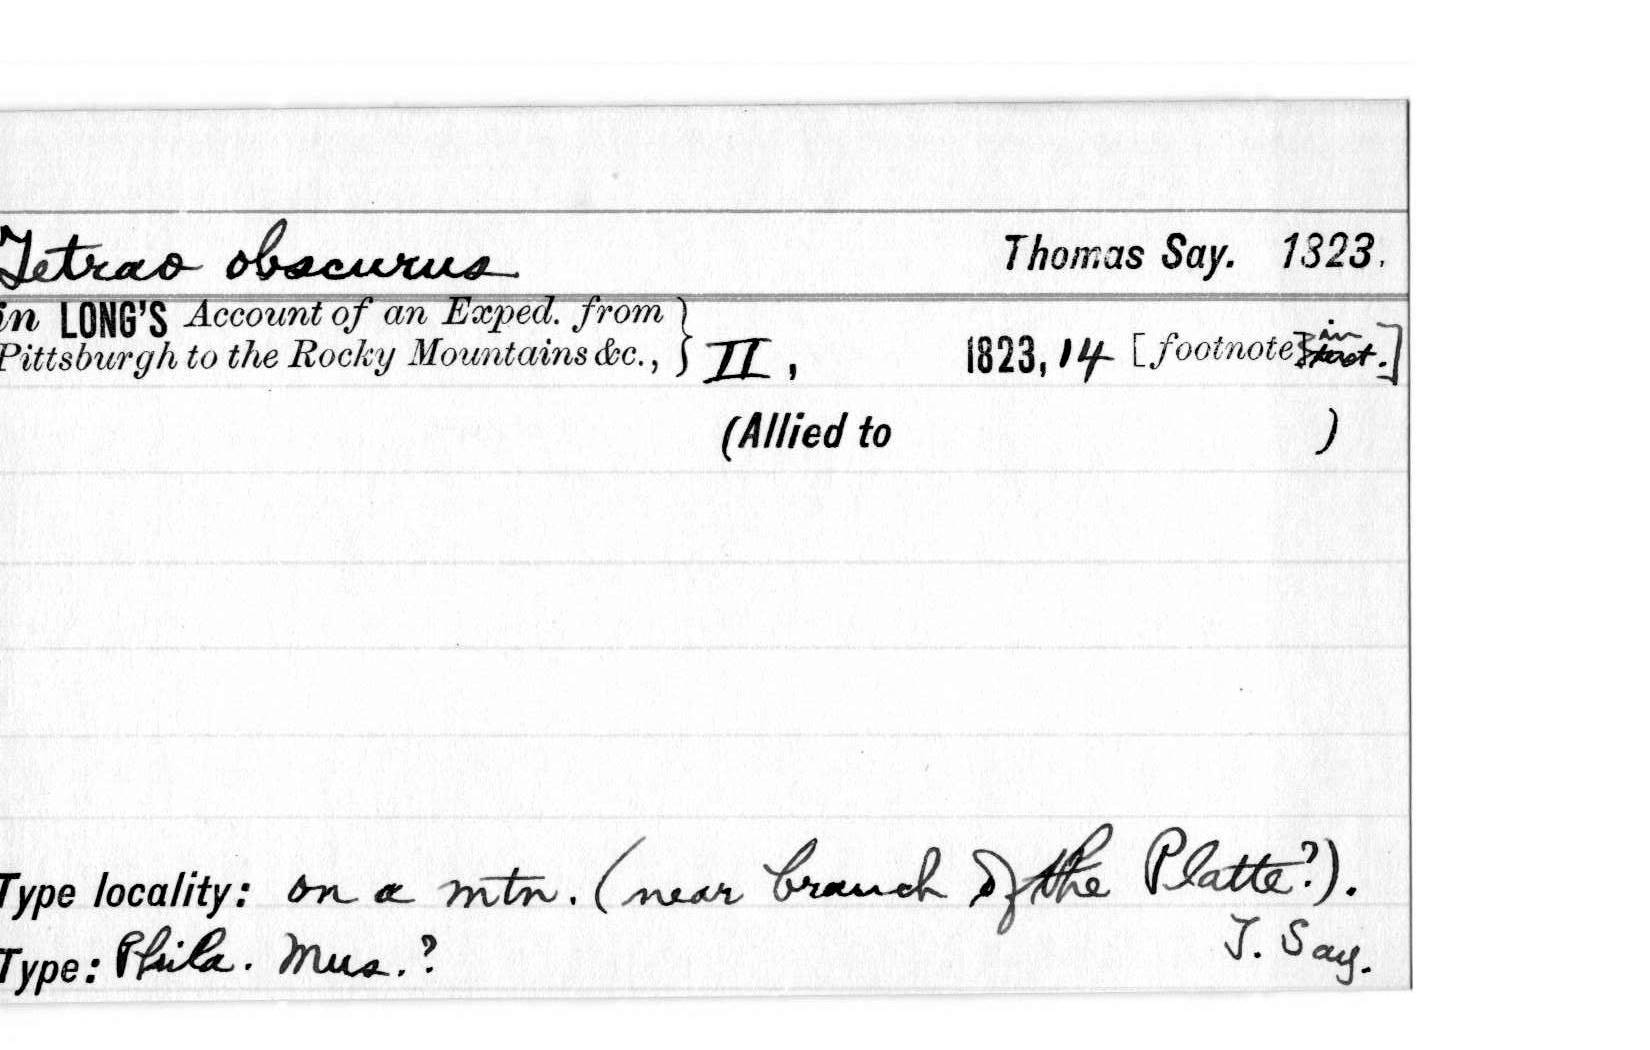 Tetrao obscurus Thomas Say. 1823.
in LONG'S Account of an Exped. from
Pittsburgh to the Rocky Mountains &c., } II, 1823, 14 [footnote] in
(Allied to )
Type locality: on a mtn. (near branch of the Platte?).
Type: Phila. Mus.? T. Say.